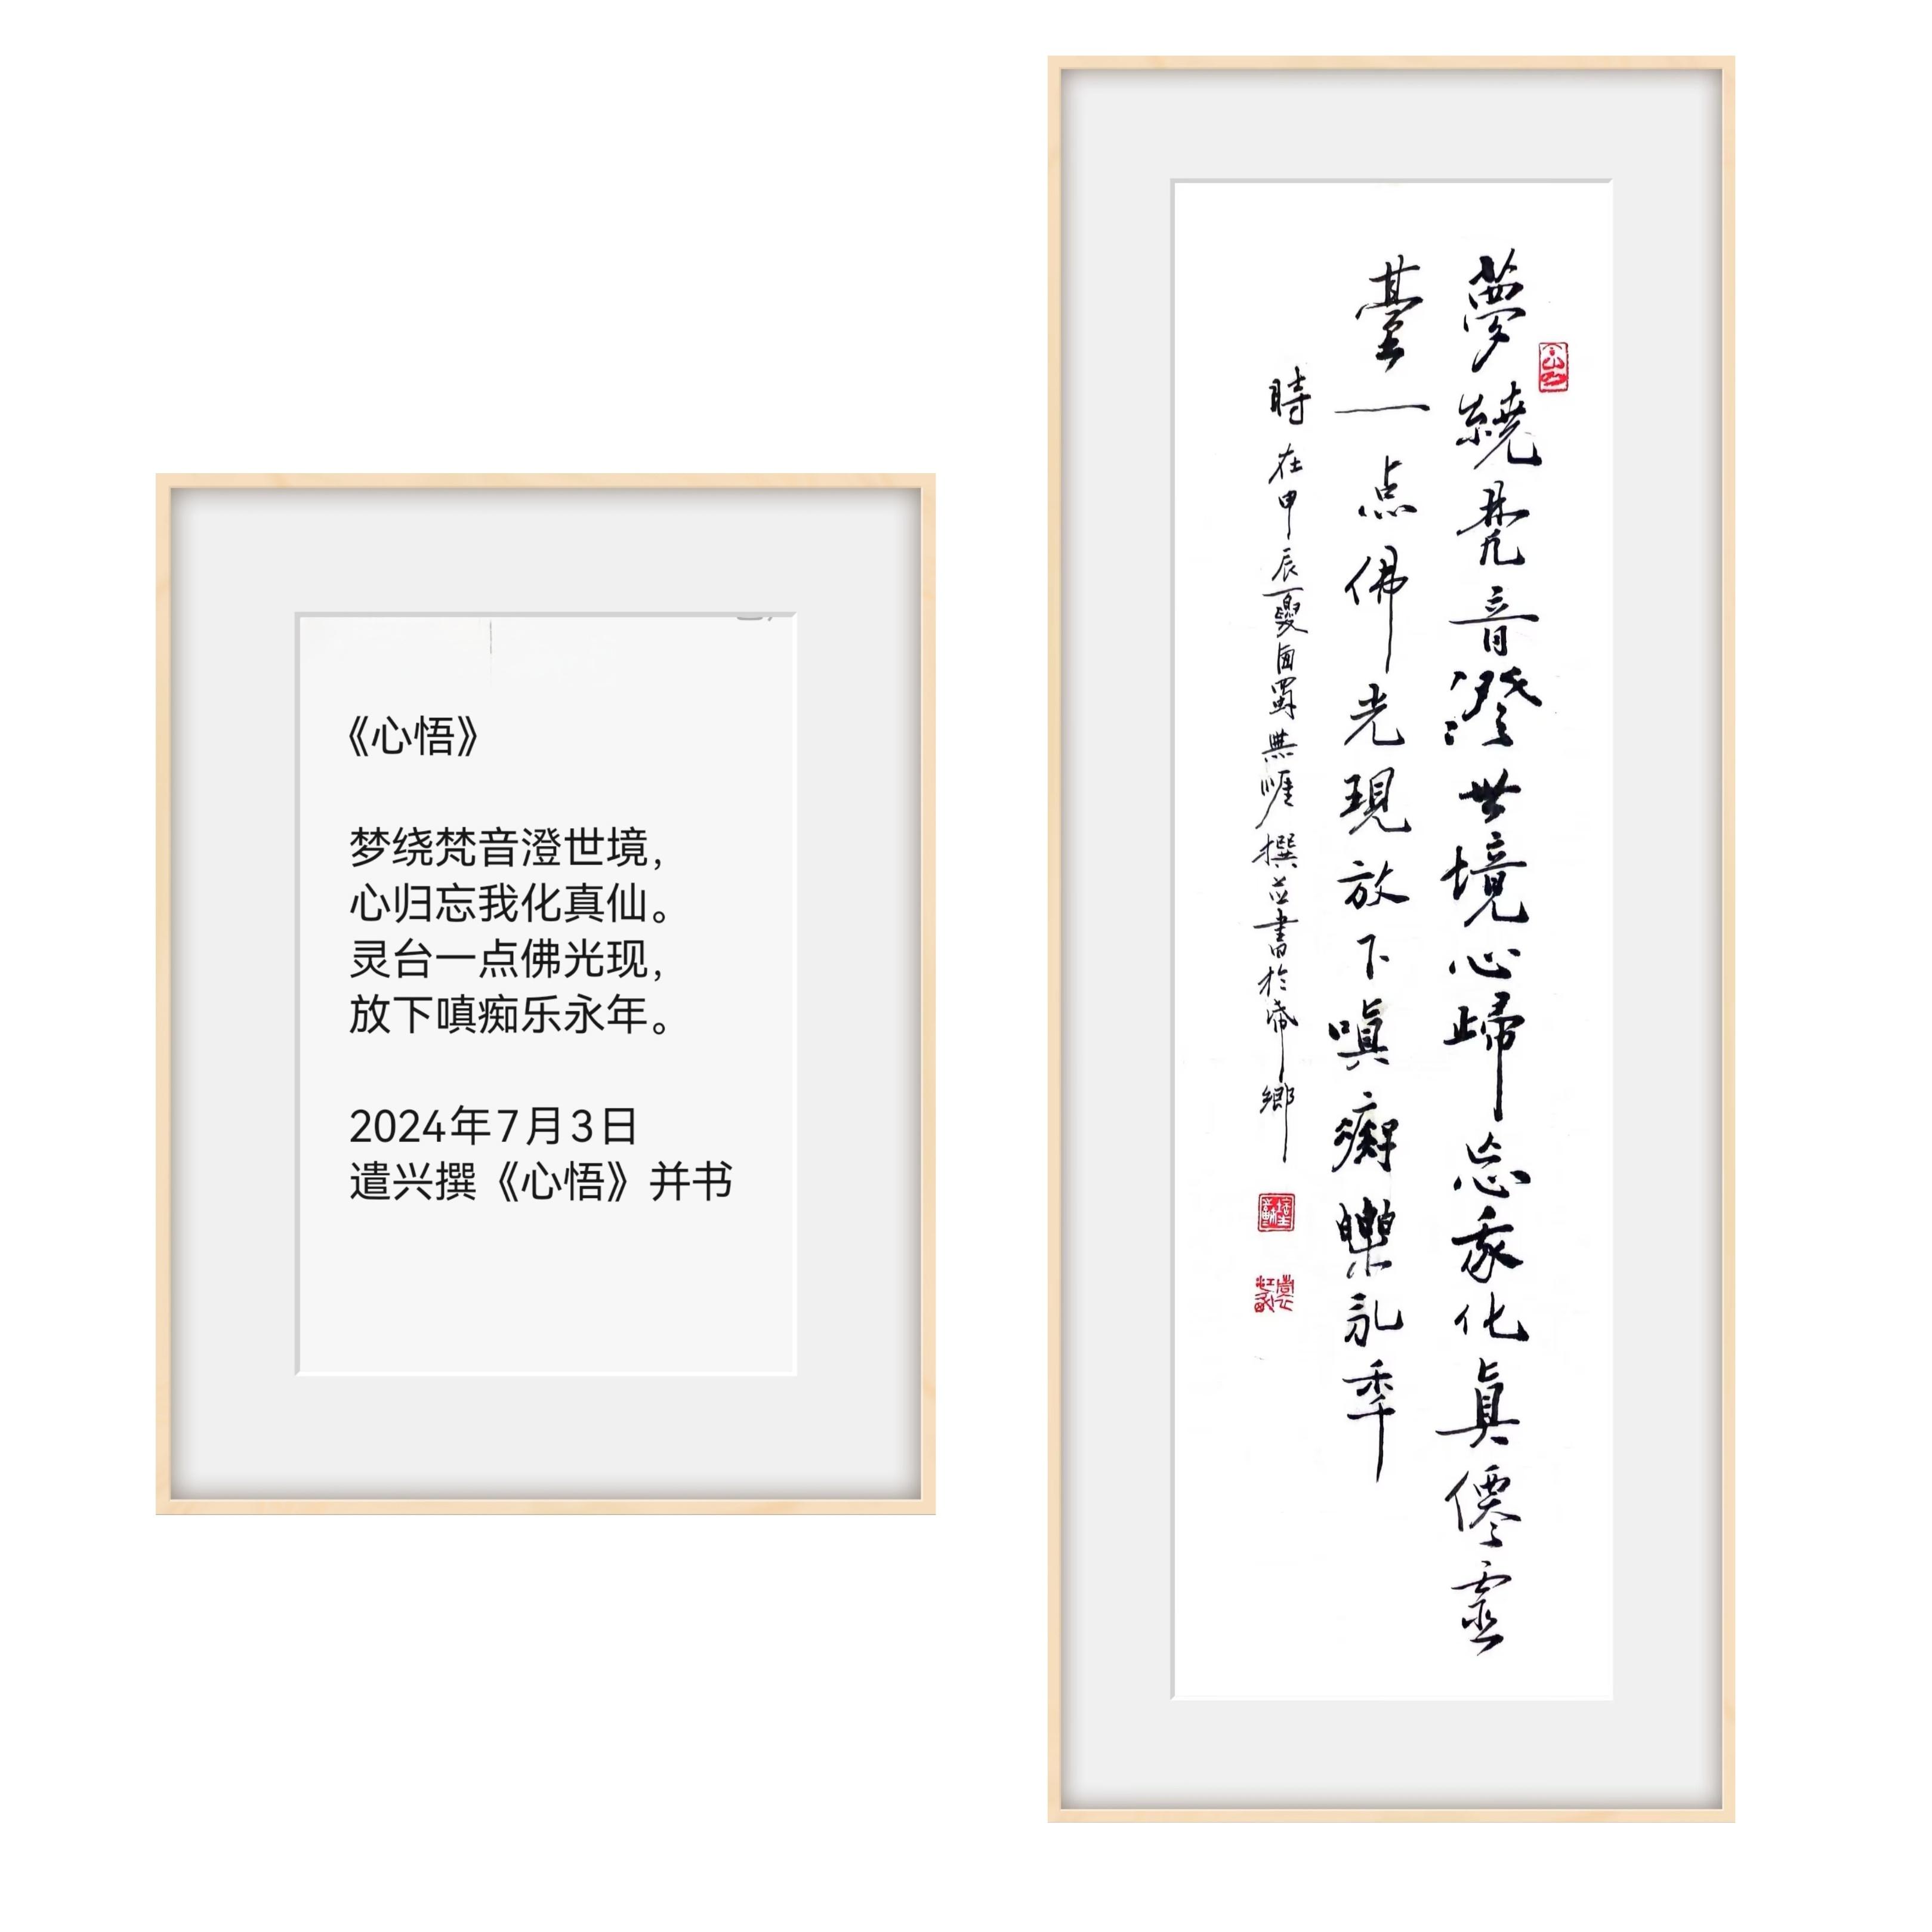 《心悟》
梦绕梵音澄世境，
心归忘我化真仙。
灵台一点佛光现，
放下嗔痴乐永年。
2024年7月3日
遣兴撰《心悟》并书
夢繞梵音澄世境心歸忘我化真僊靈
臺一点佛光現放下嗔癡樂永年
時在甲辰夏西蜀無涯撰並書於帝鄉